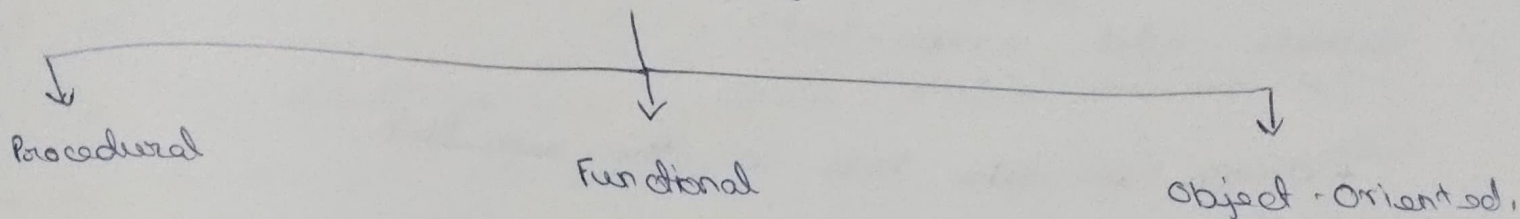 Procedural
Functional
Object-Oriented.